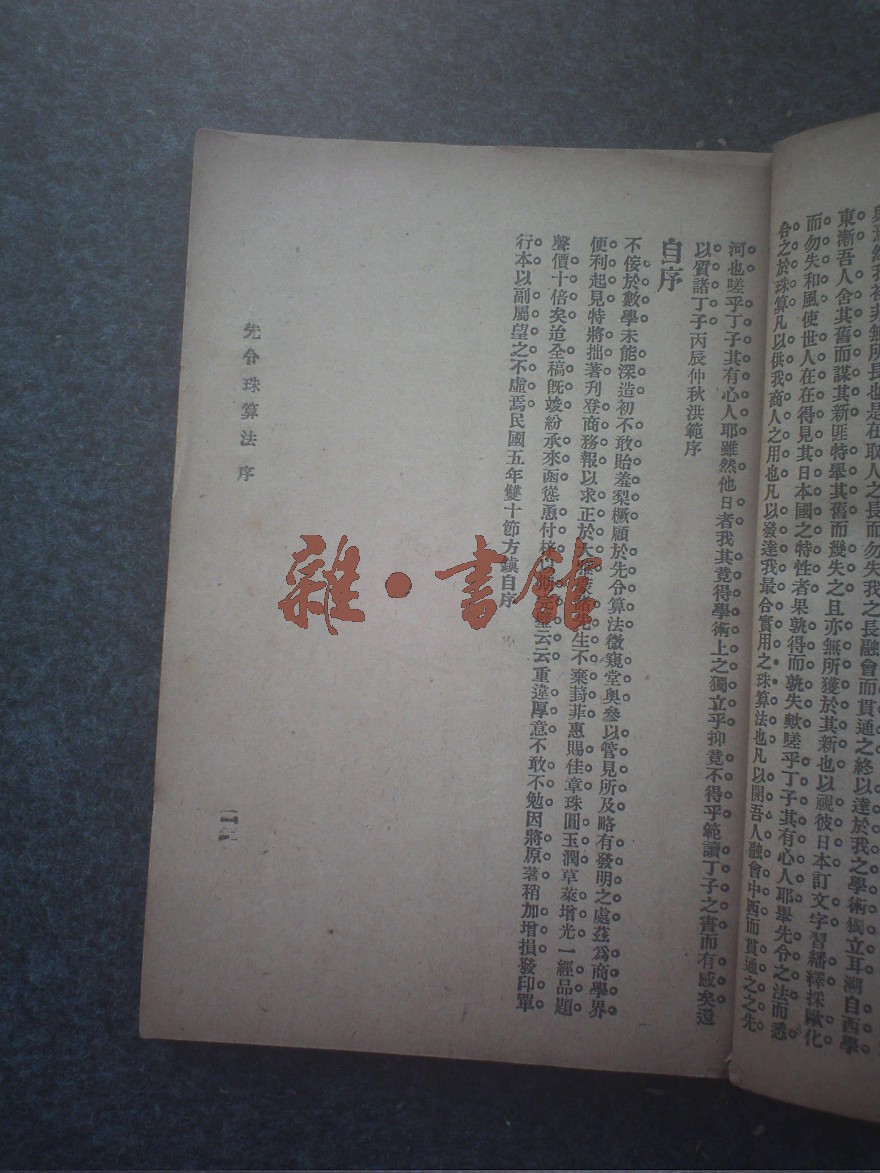 東漸吾人舍其舊而謀其新匪特舉其舊而幾失之且亦無所獲於其新也以視彼日本訂文字習繙釋採歐化
而勿失和風使世人在在得見其日本國之特性者果孰得而孰失歟嗟乎丁子其有心人耶舉先令之法而悉
合之於珠算凡以供我商人之用也凡以發達我最合實用之珠算法也凡以開吾人融會中西而貫通之之先
河也嗟乎丁子其有心人耶雖然他日者我其竟得學術上之獨立乎抑竟不得乎範讀丁子之書而有感矣這
以質諸丁子丙辰仲秋洪範序
自序
不佞於數學未能深造初不敢貽羞梨橛顧於先令算法微窺堂奧參以管見所及略有發明之處茲爲商學界
便利起見特將拙著刋登商務報以求正於大雅 先生不棄葑菲惠賜佳章珠圓玉潤草萊增光一經品題
聲價十倍矣迨全稿旣竣紛承來函慫恿付 云云重違厚意不敢不勉因將原著稍加增損發印單
行本以副屬望之不虛焉民國五年雙十節方鎮自序
先令珠算法 序
二
雜·書館